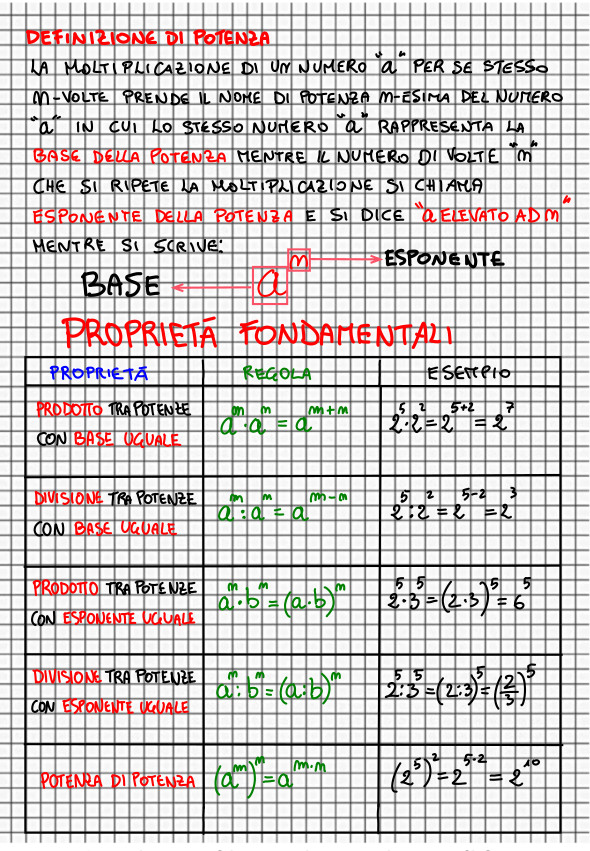 DEFINIZIONE DI POTENZA
LA MOLTIPLICAZIONE DI UN NUMERO "a" PER SE STESSO
m-VOLTE PRENDE IL NOME DI POTENZA m-ESIMA DEL NUMERO
"a" IN CUI LO STESSO NUMERO "a" RAPPRESENTA LA
BASE DELLA POTENZA MENTRE IL NUMERO DI VOLTE "m"
CHE SI RIPETE LA MOLTIPLICAZIONE SI CHIAMA
ESPONENTE DELLA POTENZA E SI DICE "a ELEVATO AD m"
MENTRE SI SCRIVE:
BASE ← a^m → ESPONENTE
PROPRIETÀ FONDAMENTALI
PROPRIETÀ REGOLA ESEMPIO
PRODOTTO TRA POTENZE
CON BASE UGUALE
a^m · a^n = a^(m+n)
2^5 · 2^2 = 2^(5+2) = 2^7
DIVISIONE TRA POTENZE
CON BASE UGUALE
a^m : a^n = a^(m-n)
2^5 : 2^2 = 2^(5-2) = 2^3
PRODOTTO TRA POTENZE
CON ESPONENTE UGUALE
a^m · b^m = (a·b)^m
2^5 · 3^5 = (2·3)^5 = 6^5
DIVISIONE TRA POTENZE
CON ESPONENTE UGUALE
a^m : b^m = (a:b)^m
2^5 : 3^5 = (2:3)^5 = (2/3)^5
POTENZA DI POTENZA
(a^m)^n = a^(m·n)
(2^5)^2 = 2^(5·2) = 2^10